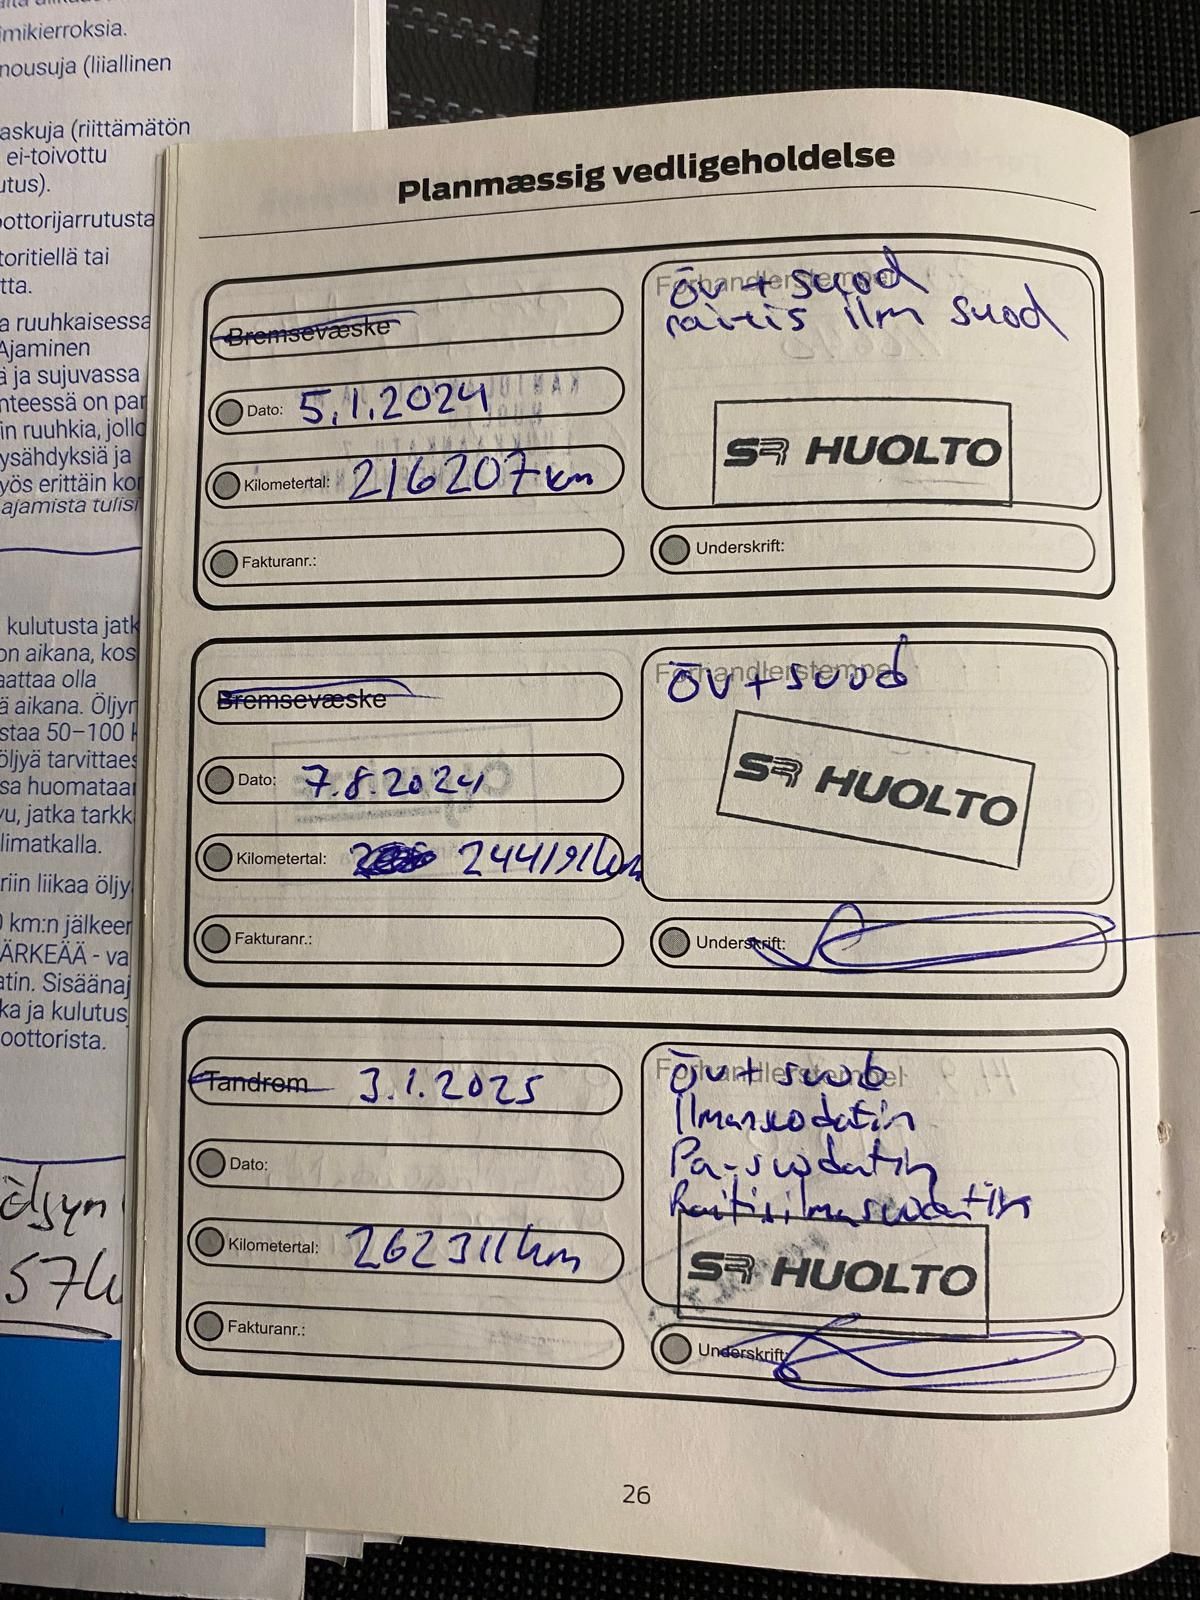 imikierroksia.
nousuja (liiallinen
askuja (riittämätön
ei-toivottu
utus).
oottorijarrutusta
toritiellä tai
tta.
a ruuhkaisessa
Ajaminen
ä ja sujuvassa
nteessä on par
in ruuhkia, jollo
ysähdyksiä ja
yös erittäin kor
ajamista tulisi
kulutusta jatk
on aikana, kos
aattaa olla
ä aikana. Öljyr
staa 50–100 k
öljyä tarvittaes
sa huomataar
vu, jatka tarkk
limatkalla.
riin liikaa öljy
0 km:n jälkeer
ÄRKEÄÄ - va
atin. Sisäänaj
ka ja kulutus
oottorista.
öljyn
57k
Planmæssig vedligeholdelse
Bremsevæske
Dato: 5.1.2024
Kilometertal: 216207 km
Fakturanr.:
Forhandlerstempel
Öv + suod
raitis ilm suod
SR HUOLTO
Underskrift:
Bremsevæske
Dato: 7.8.2024
Kilometertal: 244191km
Fakturanr.:
Forhandlerstempel
Öv + suod
SR HUOLTO
Underskrift:
Tandrem 3.1.2025
Dato:
Kilometertal: 262311km
Fakturanr.:
Forhandlerstempel
Öv + suod
Ilmansuodatin
Pa-suodatin
Raitisilmasuodatin
SR HUOLTO
Underskrift:
26